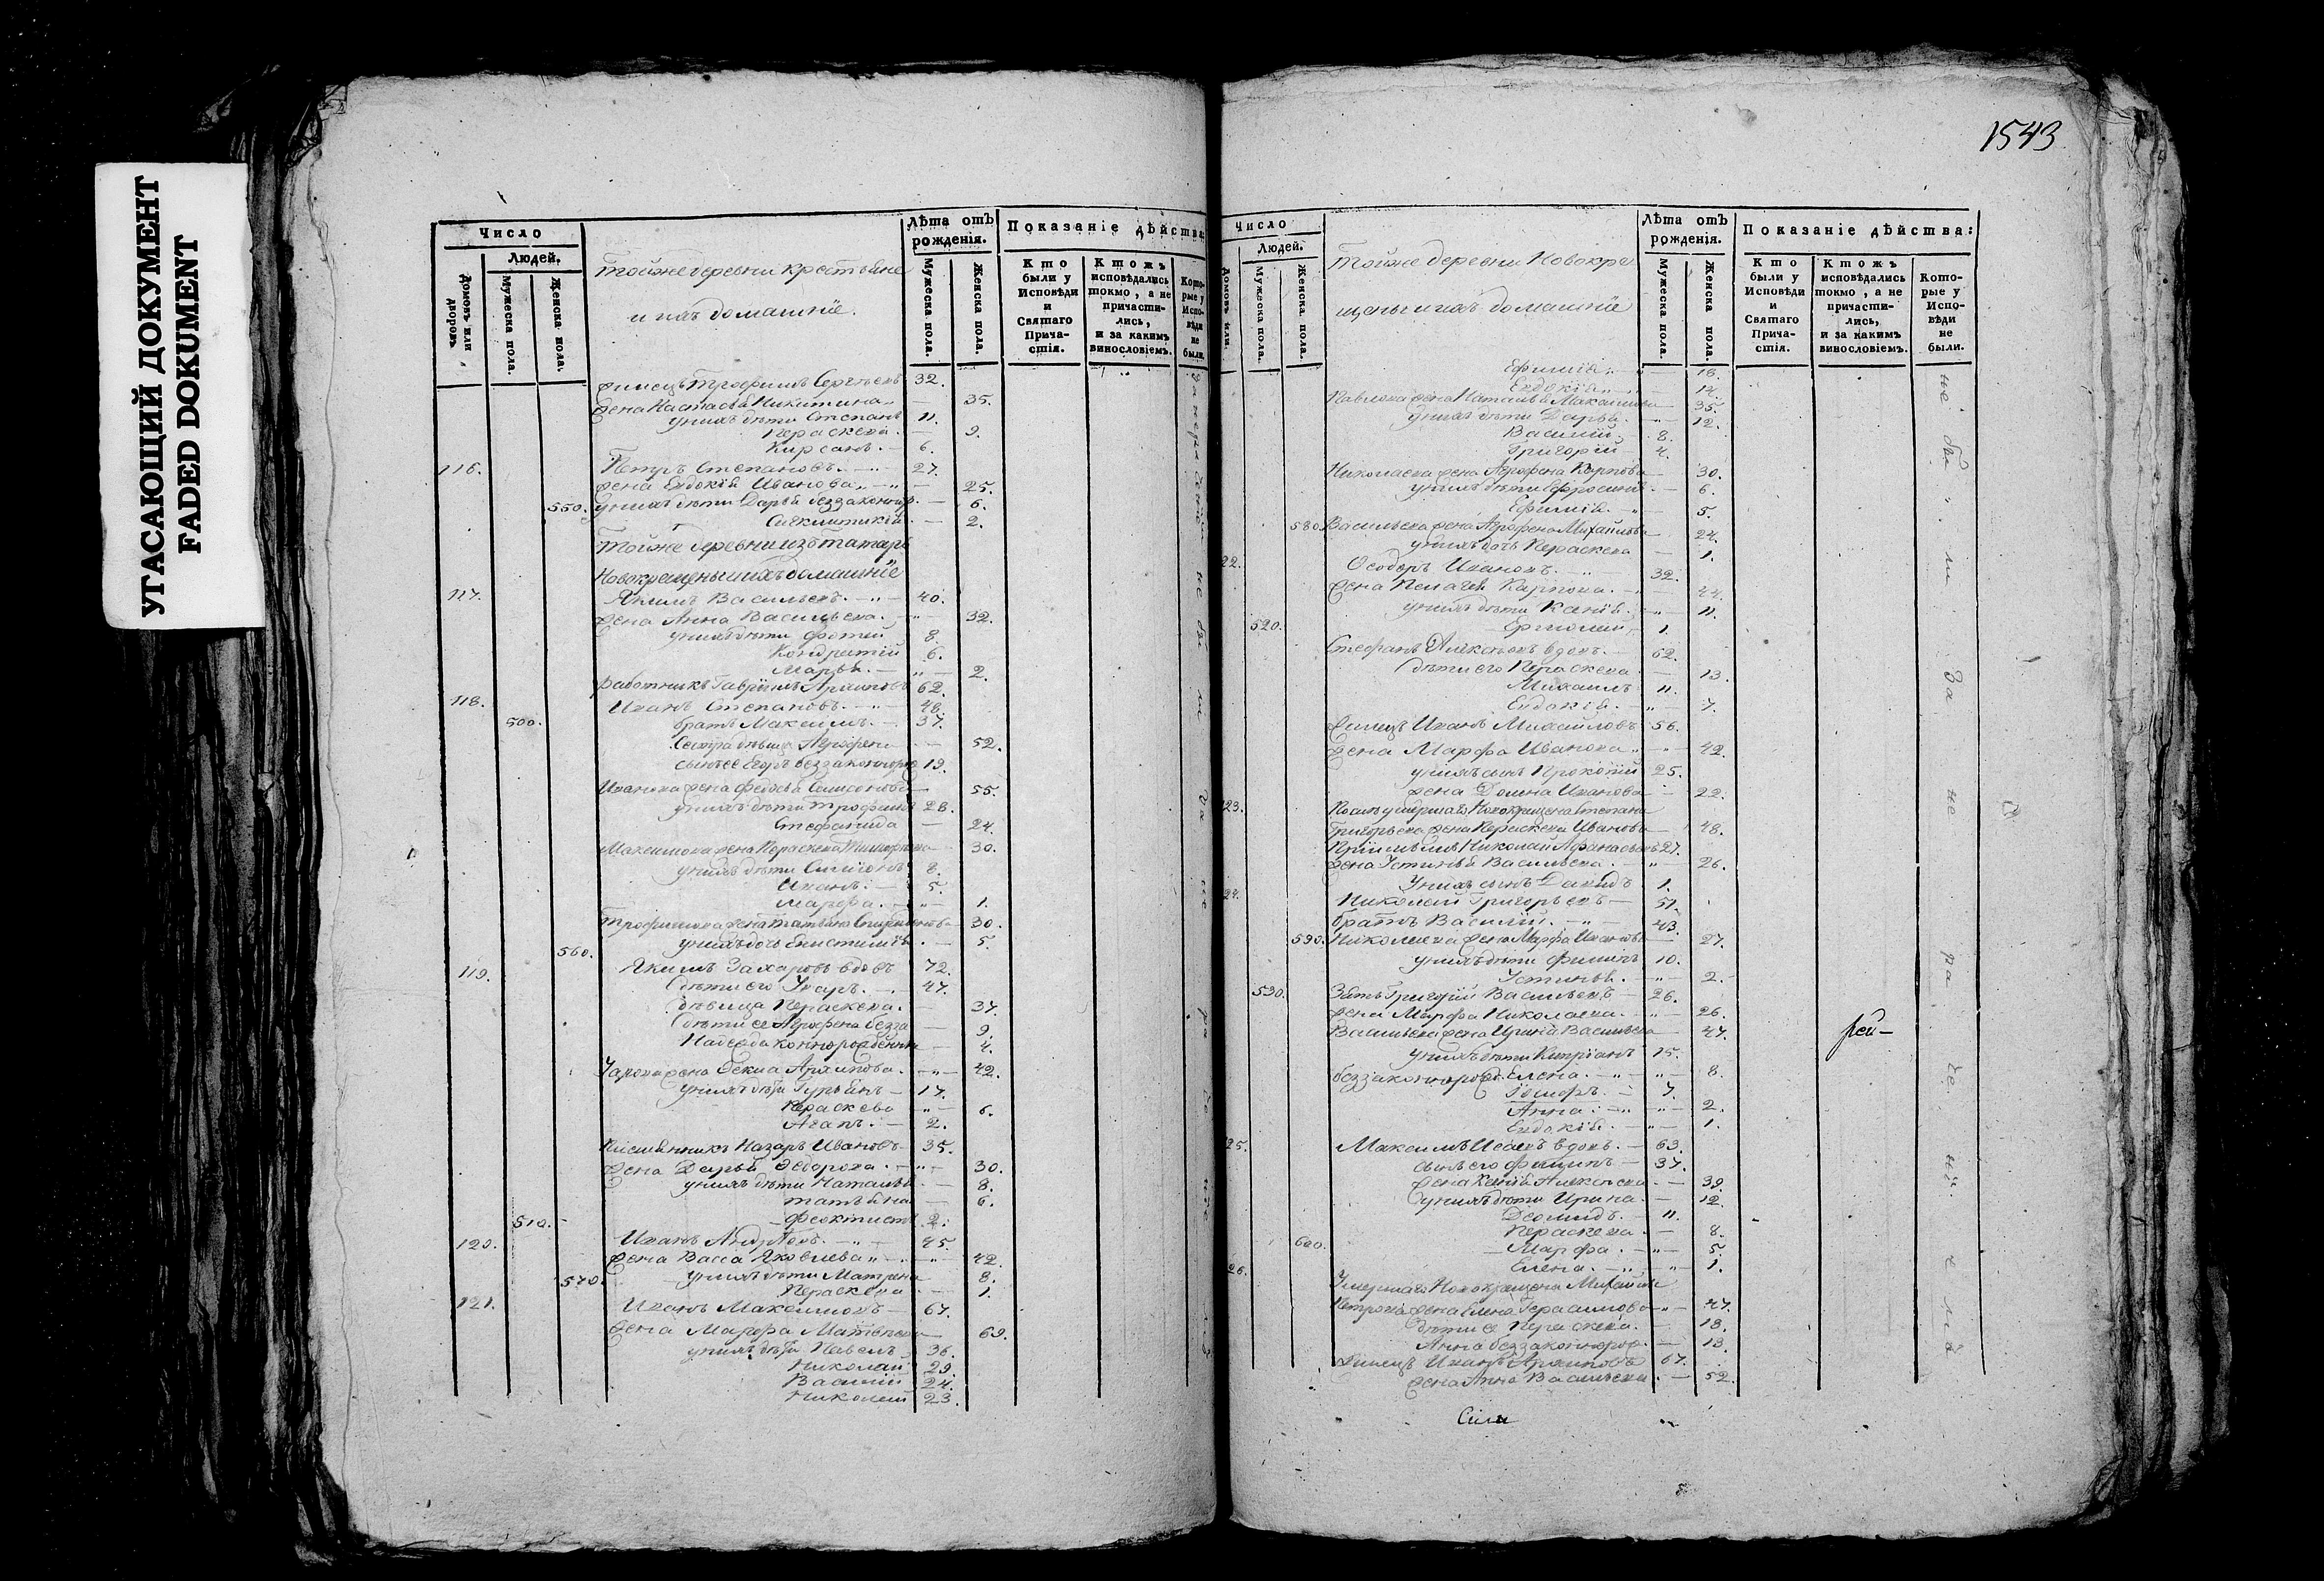 УГАСАЮЩИЙ ДОКУМЕНТ
FADED DOKUMENT
Число
Людей.
Домовъ или дворовъ
Мужеска пола.
Женска пола.
Тойже деревни крестьяне
и ихъ домашніе.
Лѣта отъ
рожденія.
Мужеска пола.
Женска пола.
Показаніе дѣйства:
Кто
были у
Исповѣди
и
Святаго
Прича-
стія.
Ктожъ
исповѣдались
токмо, а не
причасти-
лись,
и за какимъ
винословіемъ.
Кото-
рые у
Испо-
вѣди
не
были.
Трофимъ Сергѣевъ 32.
жена Настасья Никитина 35.
у нихъ дѣти Степанъ 11.
Пераскева 9.
Кирсанъ 6.
116. Петръ Степановъ 27.
жена Евдокія Иванова 25.
550. у нихъ дѣти Дарья беззаконнор. 6.
2.
Тойже деревни изъ татаръ
Новокрещены и ихъ домашніе
117. Якимъ Васильевъ 40.
жена Анна Васильева 32.
у нихъ дѣти Фотий 8.
Кондратій 6.
Марья 2.
работникъ Гавріилъ Архиповъ 62.
118. Иванъ Степановъ 48.
500. братъ Максимъ 37.
Сестра дѣвица Агрофена 52.
сынъ ее Егоръ беззаконнорож 19.
Иванова жена Федосья 55.
у нихъ дѣти Трофимъ 28.
Стефанида 24.
Максимова жена Пераскева 30.
у нихъ дѣти Симіонъ 8.
Иванъ 5.
Марфа 1.
Трофимова жена Татьяна 30.
560. у нихъ дочь 5.
119. Якимъ Захаровъ вдовъ 72.
дѣти его Уаръ 47.
дѣвица Пераскева 37.
дѣти ее Агрофена безза 9.
Надежда коннорожденны 4.
Уарова жена Фекла Архипова 42.
у нихъ дѣти Гурьянъ 17.
Пераскева 6.
Агапъ 2.
Назаръ Ивановъ 35.
жена Дарья Ѳедорова 30.
у нихъ дѣти Наталья 8.
татьяна 6.
510. Феоктистъ 2.
120. Иванъ 45.
жена Васса Яковлева 42.
570. у нихъ дѣти Матрена 8.
Пераскева 1.
121. Иванъ Максимовъ 67.
жена Марфа Матвѣева 69.
у нихъ дѣти Павелъ 36.
Николай 29.
Василій 24.
Николай 23.
1543
Число
Людей.
Домовъ или
Мужеска пола.
Женска пола.
Тойже деревни Новокре
щены и ихъ домашніе
Лѣта отъ
рожденія.
Мужеска пола.
Женска пола.
Показаніе дѣйства:
Кто
были у
Исповѣди
и
Святаго
Прича-
стія.
Ктожъ
исповѣдались
токмо, а не
причасти-
лись,
и за какимъ
винословіемъ.
Кото-
рые у
Испо-
вѣди
не
были.
Ефимія
Евдокія
Павлова жена Наталья Максимова 35.
у нихъ дѣти Дарья 12.
Василій 8.
Григорій 4.
Николаева жена Агрофена Карпова 30.
у нихъ дѣти Ефросинія 6.
Ефимія 5.
580. Васильева жена Агрофена Михайлова 24.
у нихъ дочь Пераскева 1.
22. Ѳеодоръ Ивановъ 32.
жена Пелагея Карпова 44.
у нихъ дѣти Ксенія 11.
520. Ермолай 1.
Стефанъ Алексѣевъ вдовъ 62.
дѣти его Пераскева 13.
Михаилъ 11.
Евдокія 7.
Жилецъ Иванъ Михайловъ 56.
жена Марфа Иванова 42.
у нихъ сынъ Прокопій 25.
жена Домна Иванова 22.
23. Послѣ умершаго Новокрещена Степана
Григорьева жена Пераскева Иванова 48.
Николай Афанасьевъ 27.
жена Устинья Васильева 26.
У нихъ сынъ Давидъ 1.
24. Николай Григорьевъ 51.
братъ Василій 43.
590. Николаева жена Марфа Иванова 27.
у нихъ дѣти Филипъ 10.
Устинья 2.
530. Зять Григорій Васильевъ 26.
жена Марфа Николаева 26.
Васильева жена Ирина Васильева 47.
у нихъ дѣти Кипріанъ 15.
беззаконнорож. Елена 8.
Іосифъ 7.
Анна 2.
Евдокія 1.
25. Максимъ Исаевъ вдовъ 63.
сынъ его Филипъ 37.
жена Ксенія Алексѣева 39.
у нихъ дѣти Ирина 12.
Деомидъ 11.
Пераскева 8.
600. Марфа 5.
26. Елена 1.
Умершаго Новокрещена Михайлы
Петрова жена Елена Герасимова 47.
дѣти ее Пераскева 18.
Анна беззаконнорож. 13.
Жилецъ Иванъ Архиповъ 67.
жена Анна Васильева 52.